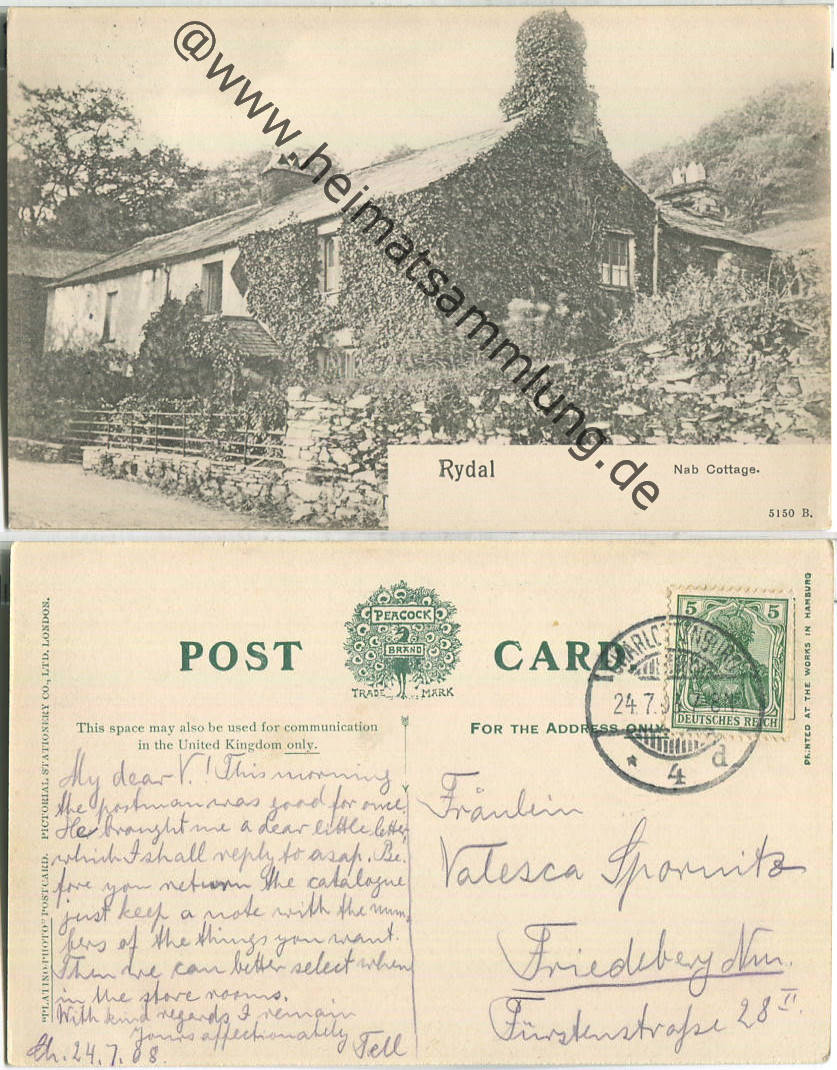 @www.heimatsammlung.de
Rydal
Nab Cottage.
5150 B.
"PLATINO-PHOTO" POSTCARD. PICTORIAL STATIONERY CO., LTD. LONDON.
POST CARD
PEACOCK
BRAND
TRADE MARK
This space may also be used for communication
in the United Kingdom only.
FOR THE ADDRESS ONLY.
PRINTED AT THE WORKS IN HAMBURG
5 5
DEUTSCHES REICH
CHARLOTTENBURG
24.7.
* 4 d
My dear V.! This morning
the postman was good for once.
He brought me a dear little letter,
which I shall reply to asap. Be-
fore you return the catalogue
just keep a note with the num-
bers of the things you want.
Then we can better select when
in the store rooms.
With kind regards I remain
Yours affectionately
Tell
Ch. 24.7.08.
Fräulein
Valesca Spornitz
Friedeberg Nm.
Fürstenstraße 28 II.